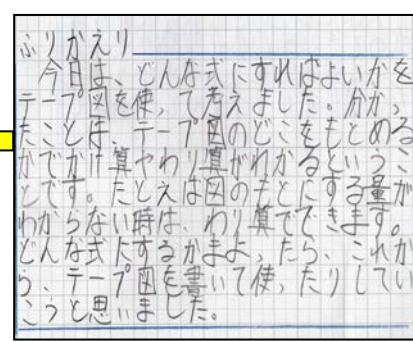 ふりかえり
今日は、どんな式にすればよいかを
テープ図を使って考えました。分かっ
たことは、テープ図のどこをもとめる
かでかけ算やわり算がわかるというこ
とです。たとえば図のもとにする量が
わからない時は、わり算でできます。
どんな式にするかまよったら、これか
ら、テープ図を書いて使ったりしてい
こうと思いました。